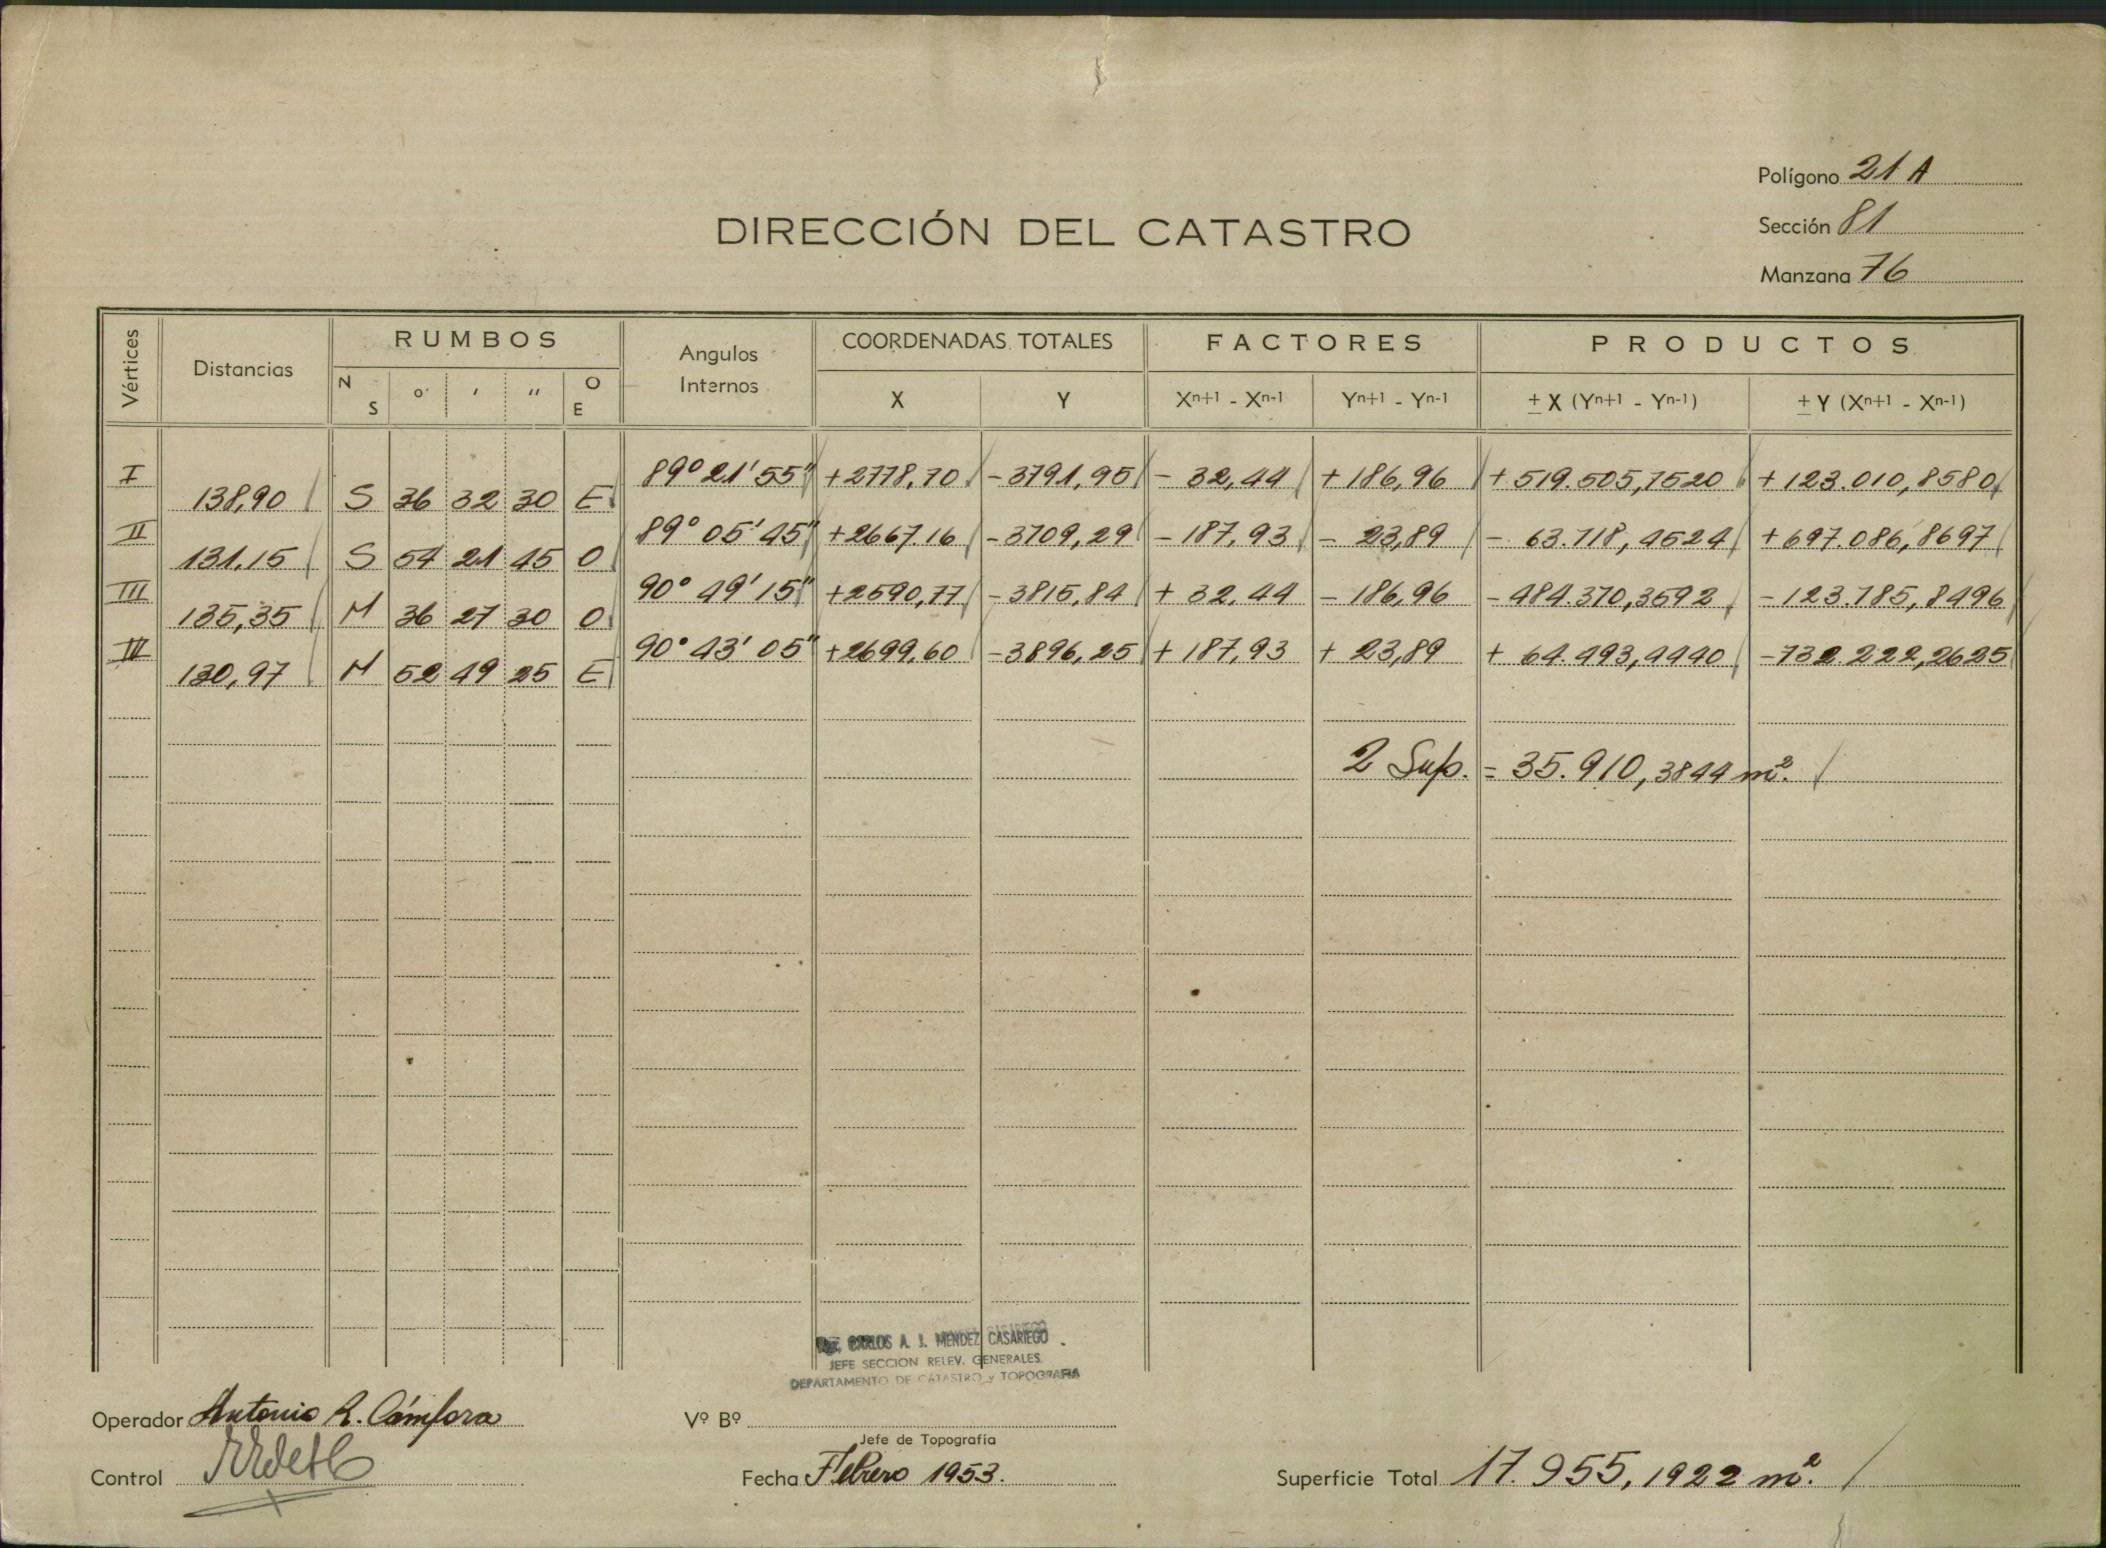 Polígono 21 A
Sección 81
Manzana 76
DIRECCIÓN DEL CATASTRO
Vértices Distancias RUMBOS Angulos Internos COORDENADAS TOTALES FACTORES PRODUCTOS
N S o ' " O E X Y Xn+1 - Xn-1 Yn+1 - Yn-1 ± X (Yn+1 - Yn-1) ± Y (Xn+1 - Xn-1)
I 89° 21' 55" +2778,70 -3791,95 - 32,44 + 186,96 + 519.505,7520 + 123.010,8580
138,90 S 36 32 30 E
II 89° 05' 45" +2667.16 -3709,29 - 187,93 - 23,89 - 63.718,4524 + 697.086,8697
131,15 S 54 21 45 O
III 90° 49' 15" +2590,77 -3815,84 + 32,44 - 186,96 - 484.370,3592 - 123.785,8496
135,35 N 36 27 30 O
IV 90° 43' 05" +2699,60 -3896,25 + 187,93 + 23,89 + 64.493,4440 - 732.222,2625
130,97 N 52 49 25 E
2 Sup. = 35.910,3844 m².
CARLOS A. J. MENDEZ CASARIEGO
JEFE SECCION RELEV. GENERALES
DEPARTAMENTO DE CATASTRO y TOPOGRAFIA
Operador Antonio R. Cámfora
Vº Bº
Jefe de Topografía
Control
Fecha Febrero 1953.
Superficie Total 17.955,1922 m².